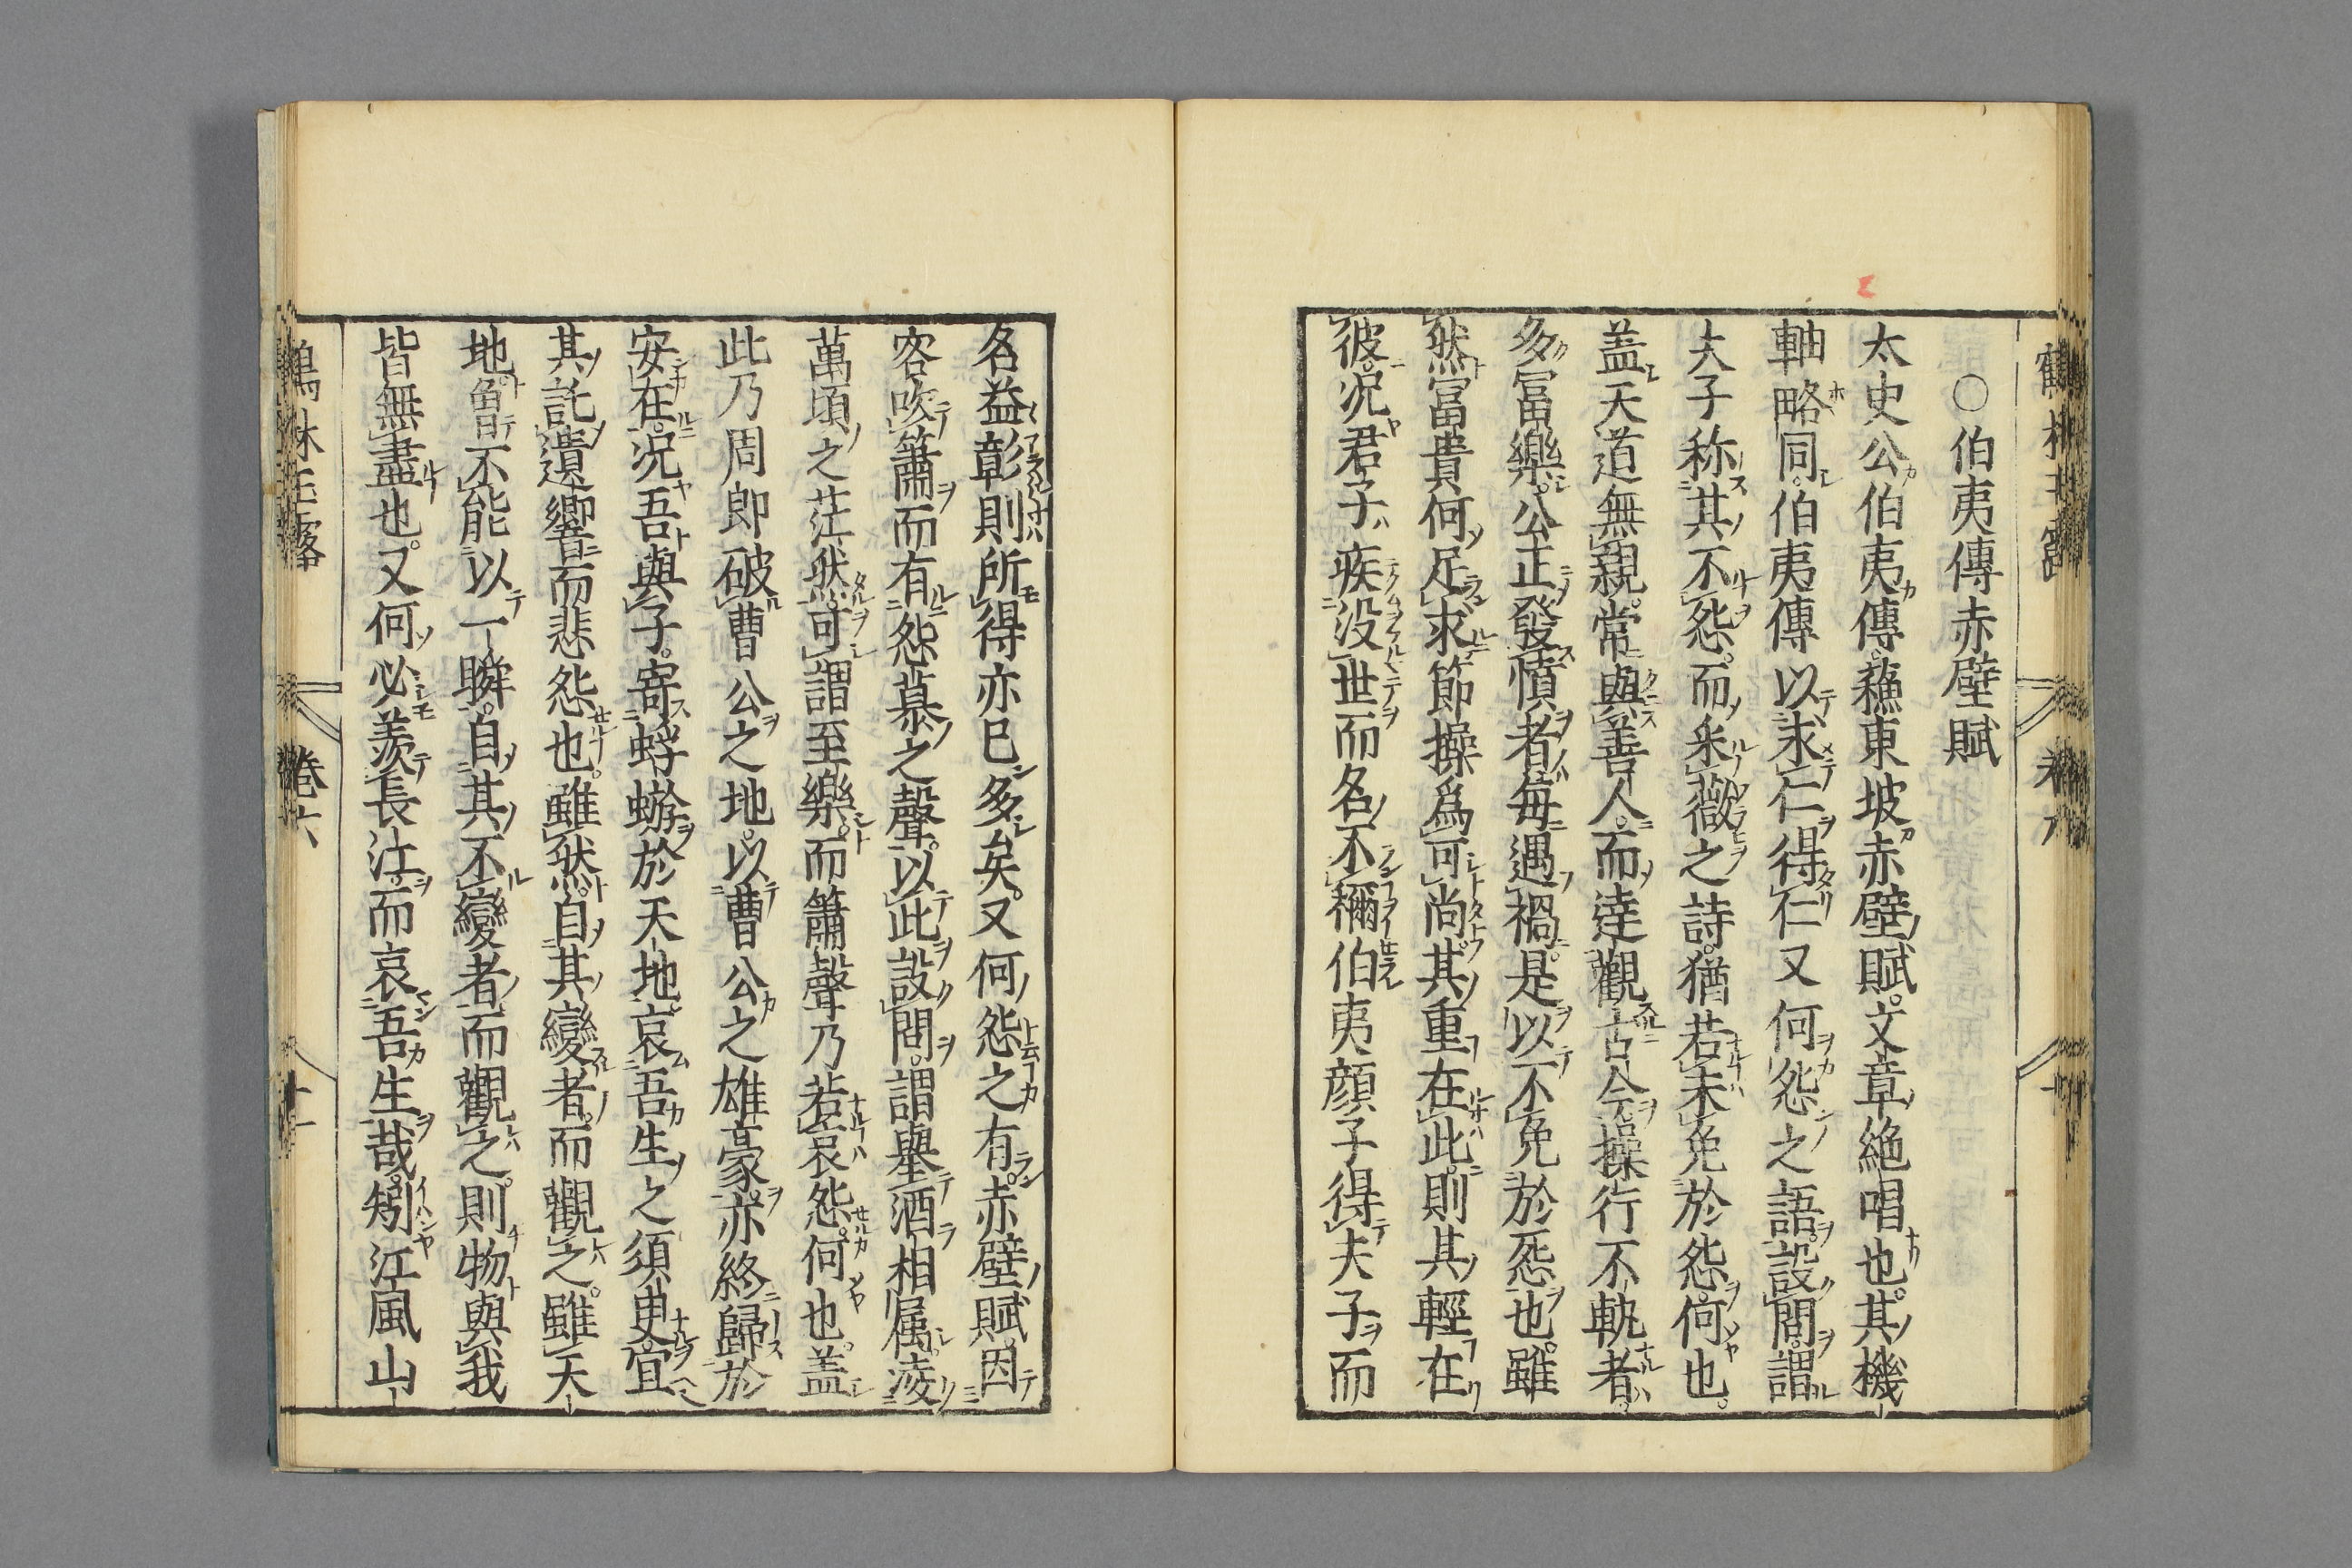 ○伯夷傳赤壁賦
太史公伯夷傳。蘓東坡赤壁賦。文章絶唱也。其機
軸略同。伯夷傳以求仁得仁又何怨之語。設問。謂
夫子称其不怨。而采薇之詩。猶若未免於怨。何也。
盖天道無親。常與善人。而達觀古今。操行不軌者。
多冨樂。公正發憤者。毎遇禍。是以不免於怨也。雖
然冨貴何足求。節操爲可尚。其重在此。則其輕在
彼。况君子疾没世而名不稱。伯夷顔子得夫子而
名益彰則所得亦已多矣。又何怨之有。赤壁賦。因
客吹簫而有怨慕之聲。以此設問。謂舉酒相属。凌
萬頃之茫然。可謂至樂。而簫聲乃若哀怨。何也。盖
此乃周郎破曹公之地。以曹公之雄豪。亦終歸於
安在。况吾與子。寄蜉蝣於天地。哀吾生之須臾。宜
其託遺響而悲怨也。雖然。自其變者。而觀之。雖天
地。曽不能以一瞬。自其不變者。而觀之。則物與我
皆無盡也。又何必羨長江。而哀吾生哉。矧江風山
卷六